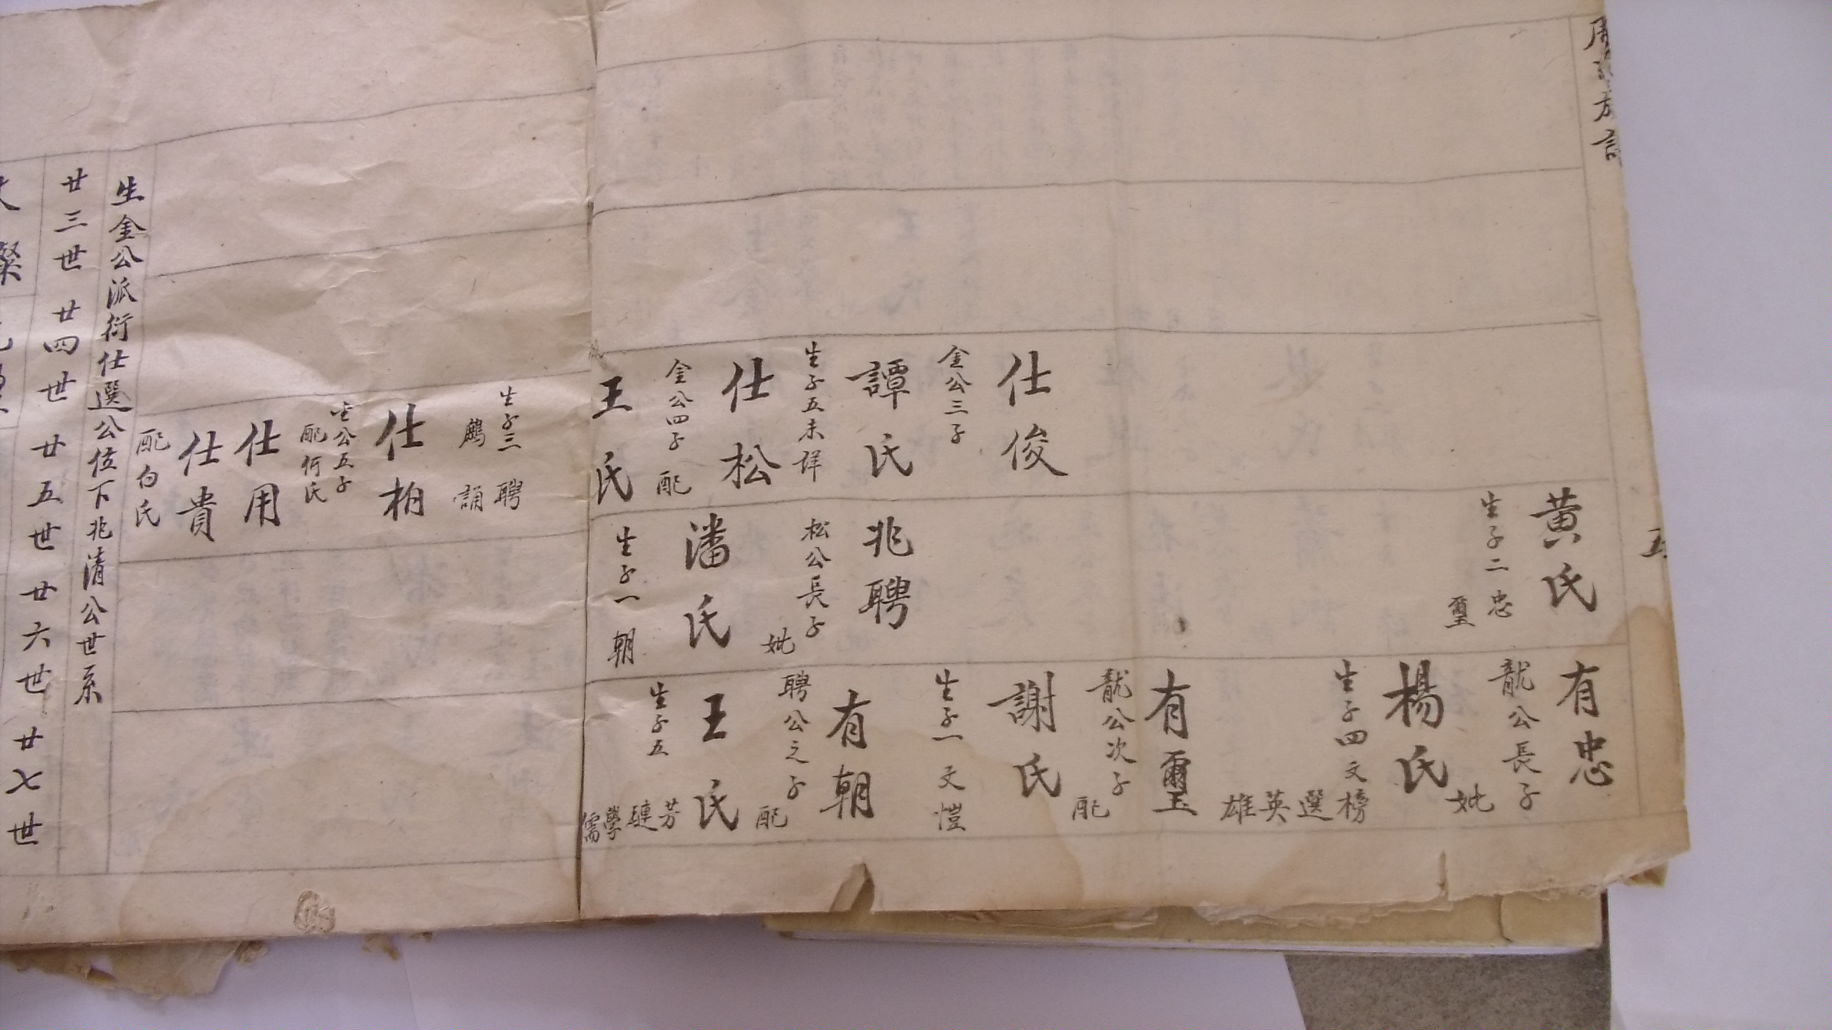 五
黄氏
生子二忠
璽
有忠
龍公長子
妣
楊氏
生子四文榜
選
英
雄
有璽
龍公次子
配
謝氏
生子一文愷
仕俊
金公三子
譚氏
生子五未詳
仕松
金公四子配
王氏
生子三聘
誦
仕柏
金公五子
配何氏
仕用
仕貴
配白氏
兆聘
松公長子
妣
潘氏
生子一朝
有朝
聘公之子
配
王氏
生子五
芳
璉
學
儒
生金公派衍仕選公位下兆清公世系
廿三世廿四世廿五世廿六世廿七世